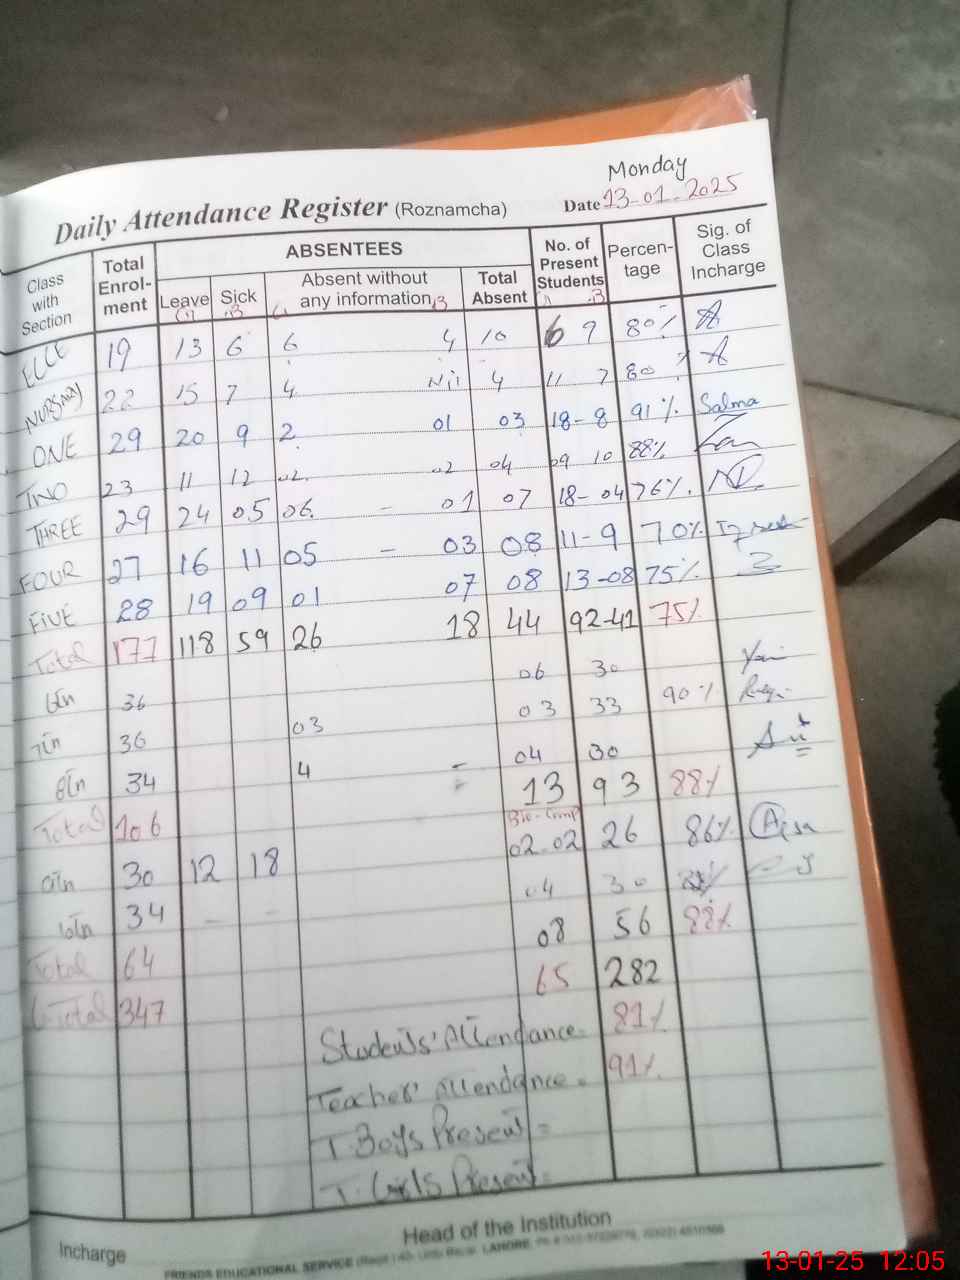 Monday
Daily Attendance Register (Roznamcha) Date 13-01-2025
Class with Section Total Enrol-ment ABSENTEES No. of Present Students Percen-tage Sig. of Class Incharge
Leave Sick Absent without any information Total Absent
G B G B G B
ECCE 19 13 6 6 4 10 6 9 80%
Nursary 22 15 7 4 Nil 4 11 7 80%
ONE 29 20 9 2 01 03 18-8 91% Salma
TWO 23 11 12 02 02 04 09 10 88%
THREE 29 24 05 06 - 01 07 18-04 76%
FOUR 27 16 11 05 - 03 08 11-9 70%
FIVE 28 19 09 01 07 08 13-08 75%
Total 177 118 59 26 18 44 92-41 75%
6th 36 06 30
7th 36 03 03 33 90%
8th 34 4 - 04 30
Total 106 13 93 88%
Bio-Comp
9th 30 12 18 02-02 26 86%
10th 34 - - 04 30
Total 64 08 56 88%
G Total 347 65 282
Students' Attendance = 81%
Teacher' Attendance = 91%
T. Boys Present =
T. Girls Present =
Incharge Head of the Institution
FRIENDS EDUCATIONAL SERVICE LAHORE
13-01-25 12:05